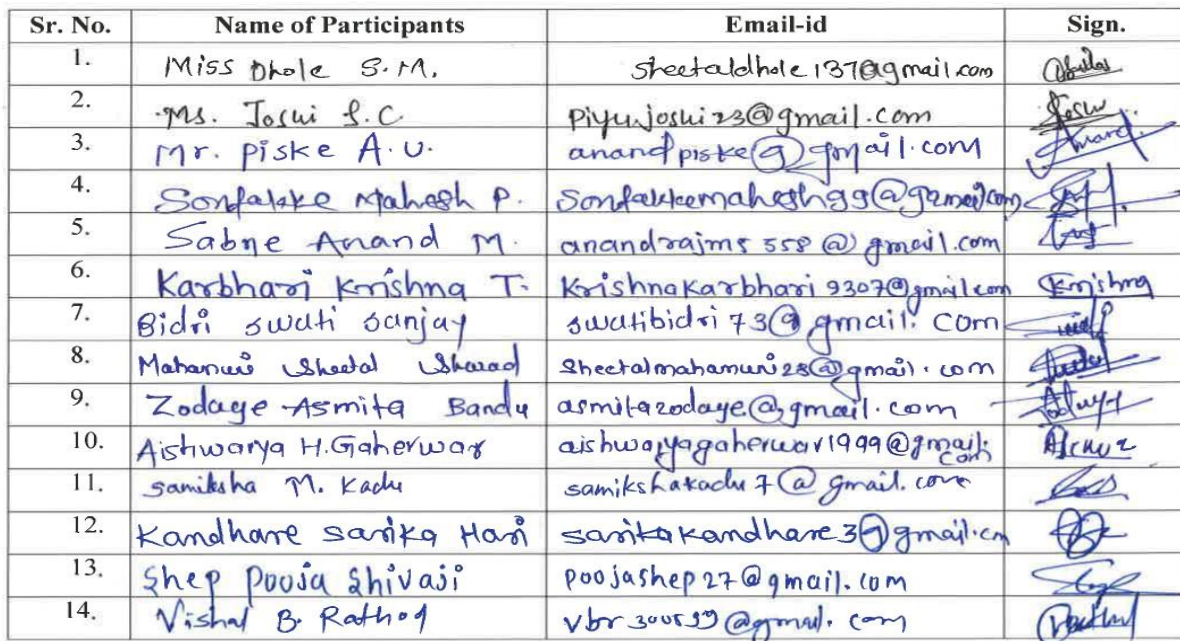 Sr. No. Name of Participants Email-id Sign.
1. Miss Dhole S.M. sheetaldhole137@gmail.com
2. Ms. Joshi S.C. piyujoshi23@gmail.com Joshi
3. Mr. Piske A.U. anandpiske@gmail.com Anand
4. Sonfakke Mahesh P. Sonfakkemahesh99@gmail.com
5. Sabne Anand M. anandrajms558@gmail.com
6. Karbhari Krishna T. Krishnakarbhari9307@gmail.com Krishna
7. Bidri Swati Sanjay swatibidri73@gmail.com
8. Mahamuni Sheetal Sharad sheetalmahamuni28@gmail.com
9. Zodage Asmita Bandu asmitazodage@gmail.com
10. Aishwarya H.Gaherwar aishwaryagaherwar1999@gmail.
com
11. Samiksha M. Kadu samikshakadu7@gmail.com
12. Kandhare Sarika Hari sarikakandhare3@gmail.cm
13. Shep Pooja Shivaji poojashep27@gmail.com
14. Vishal B. Rathod